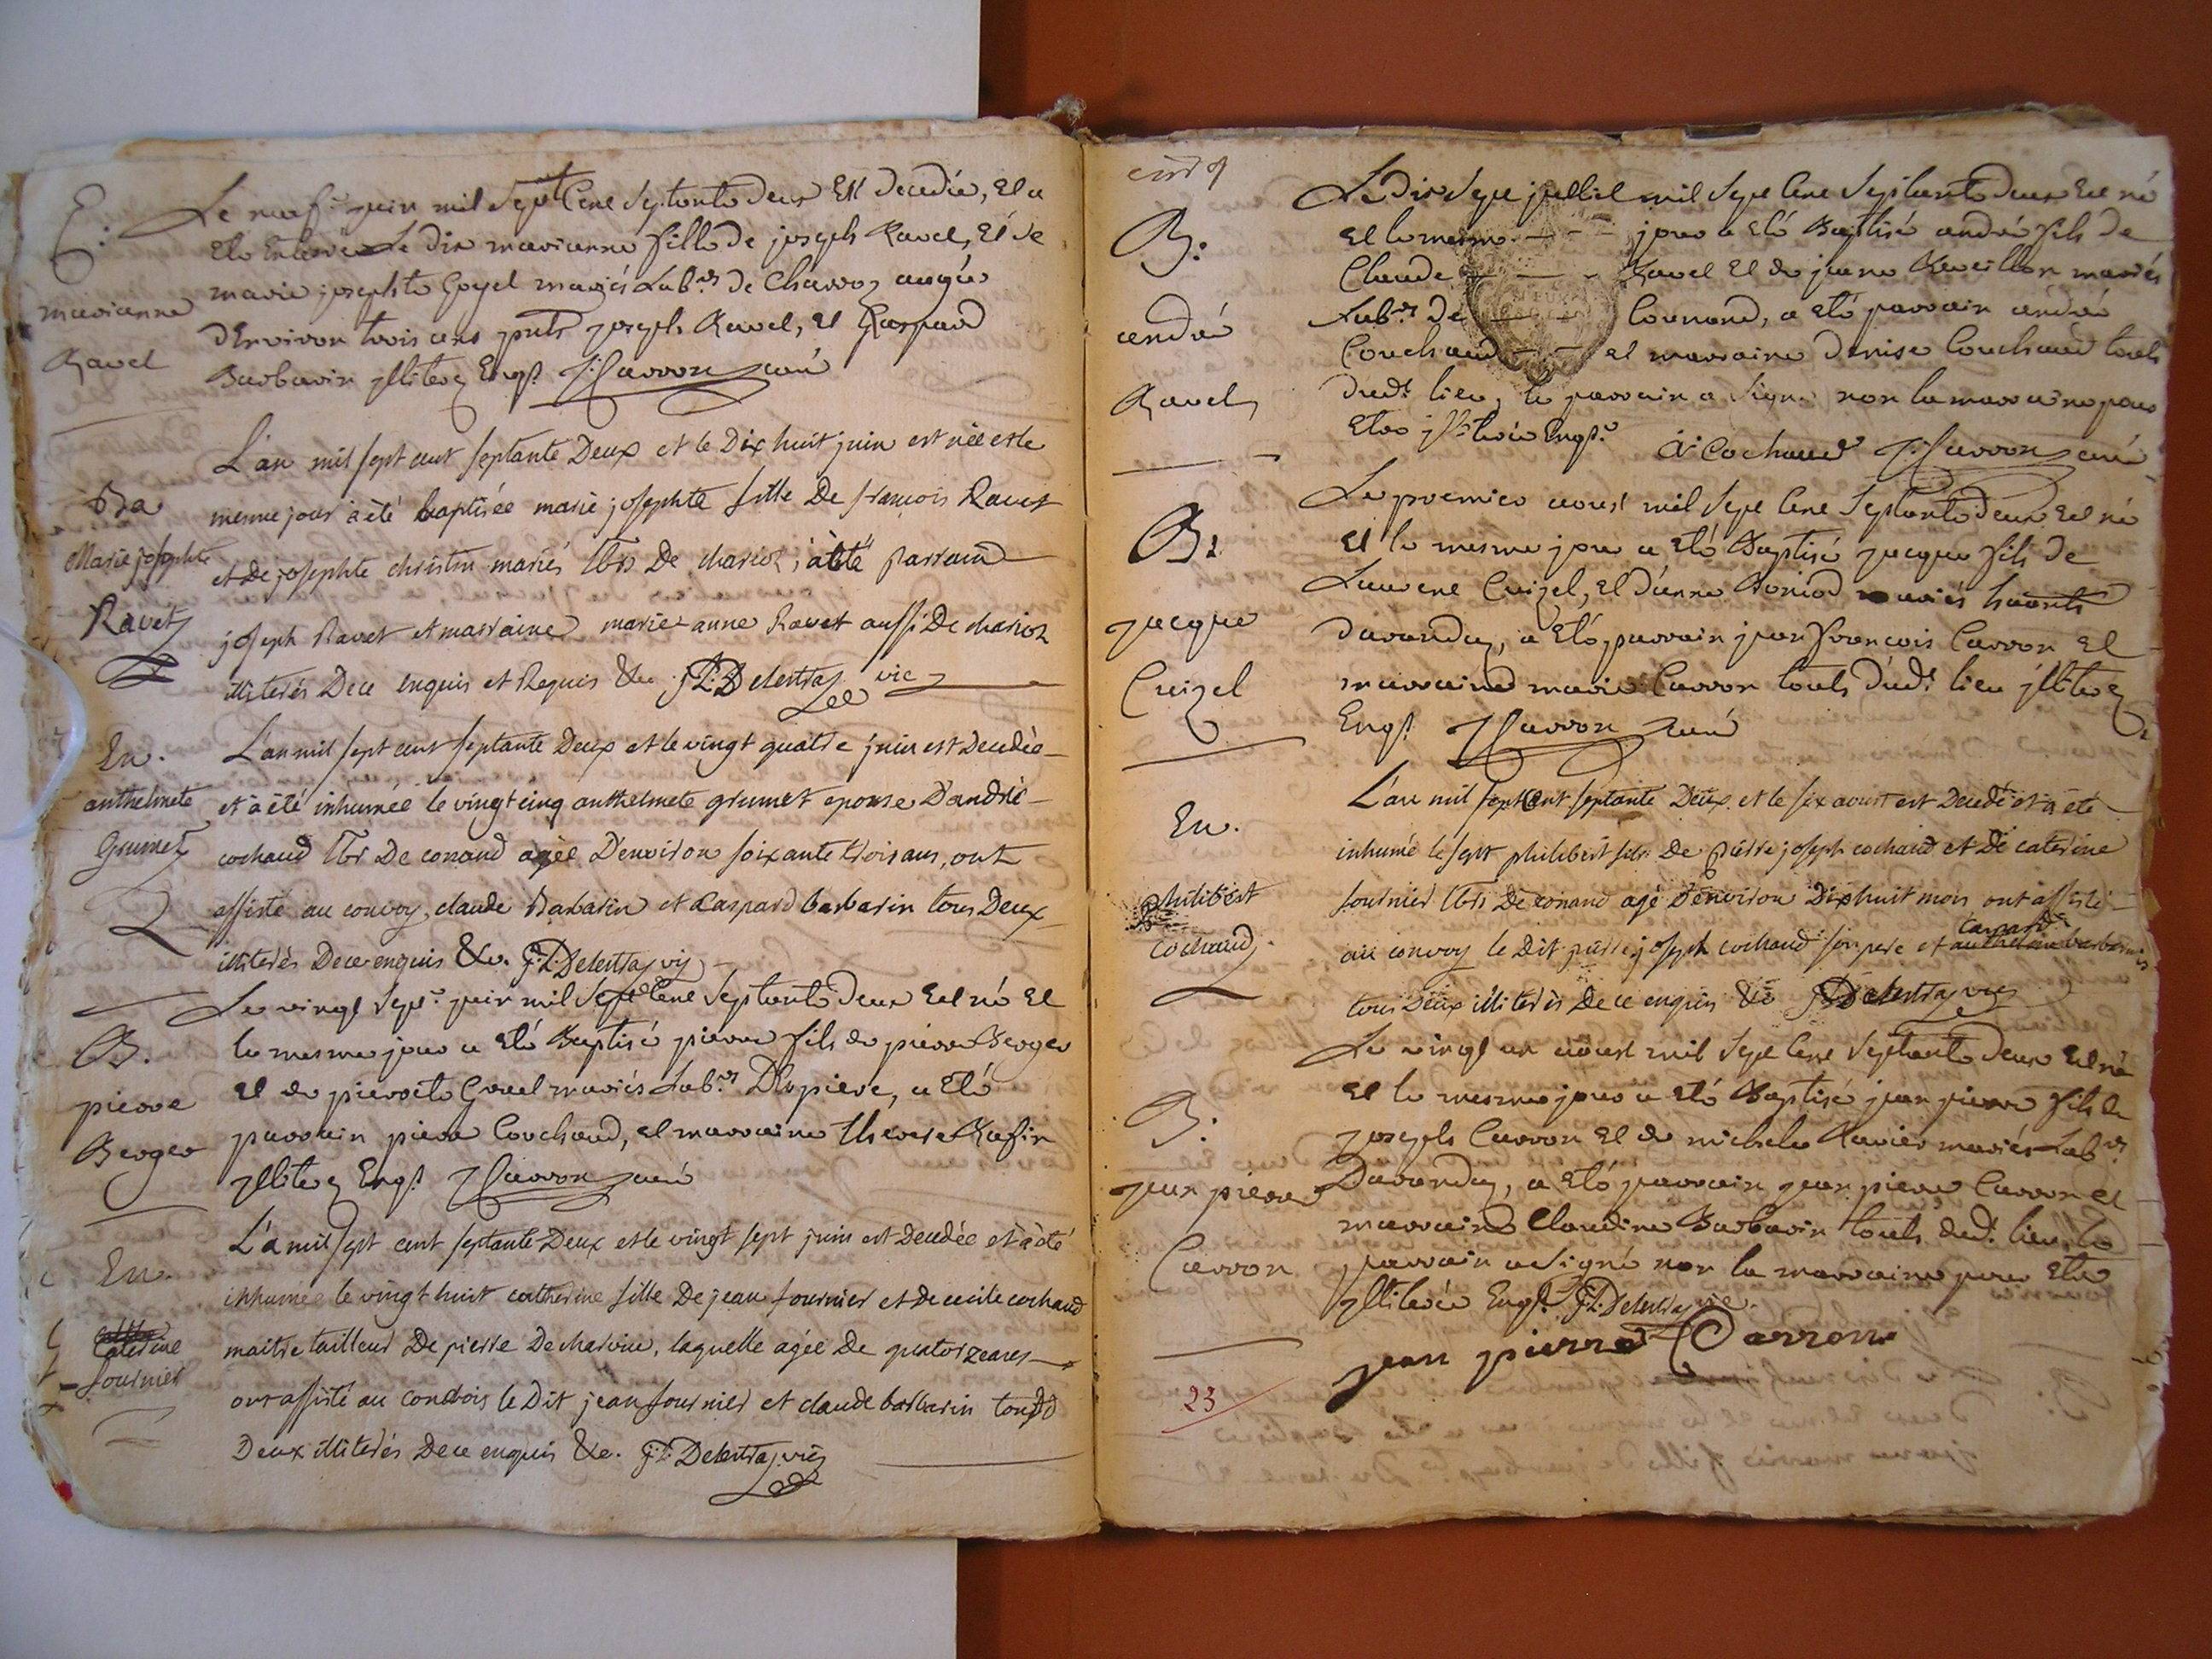 E:
marianne
Ravel
Le neuf juin mil Sept Cent Septante deux Est decedée, Et a
Eté Enterrée Le dix marianne fille de joseph Ravel, Et de
marie josephte Goyel mariés Lab.rs de Charvoz augée
d'Environ trois ans pnts joseph Ravel, et Gaspard
Barbarin jlliterez Enqs. J: Carron curé
Ba
Marie josephte
Ravet
L'an mil sept cent septante Deux et le Dix huit juin est née et le
meme jour a été baptisée marie josephte fille De francois Ravet
et de josephte christin mariés lbrs De charioz, a été parrain
joseph Ravet et marraine marie anne Ravet aussi De charioz
illiterés De ce enquis et Requis &c. J:L: Delestraz vic
En.
anthelmete
Grumet
L'an mil sept cent septante Deux et le vingt quatre juin est Decedée
et a été inhumée le vingt cinq anthelmete grumet epouse D'andré
cochaud lbr De conand agée D'environ soixante trois ans, ont
assisté au convoy, claude Barbarin et Caspard barbarin tous Deux
illiterés De ce enquis &c. J:L: Delestraz vic
B.
pierre
Berger
Le vingt Sept juin mil Sept Cent Septante deux Est né Et
le mesme jour a Eté Baptisé pierre fils de pierre Berger
Et de pierrete Gonel mariés Lab.rs D'lapierre, a Eté
parrain pierre Couchaud, et marraine therese Rafin
jlliterez Enqs. J: Carron curé
En.
Caterine
fournier
L'a mil sept cent septante Deux et le vingt sept juin est Decedée et a été
inhumée le vingt huit catherine fille De jean fournier et de cecile cochaud
maitre tailleur De pierre De charvin, laquelle agée De quatorze ans
ont assisté au convois le Dit jean fournier et claude barbarin tous
Deux illiterés De ce enquis &c. J:L: Delestraz vic
B:
andré
Ravel
Le dix Sept juillet mil Sept Cent Septante deux Est né
Et le mesme jour a Eté Baptisé andré fils de
Claude Ravel Et de jeanne Reveillon mariés
Lab.rs de Connand, a Eté parrain andré
Couchaud et marraine denise Couchaud touts
dud.t lieu, le parrain a Signé non la marraine pour
Etre jlliterée Enqs. A: Cochaud J: Carron curé
B:
jacque
Cuizel
Le premier aoust mil Sept Cent Septante deux, Est né
Et le mesme jour a Eté Baptisé jacque fils de
Laurent Cuizel, et d'anne Boniod mariés
davanduz, a Eté parrain jean francois Carron et
marraine marie Carron touts dud.t lieu jlliterez
Enqs. J: Carron curé
En.
philibert
cochaud
L'an mil sept cent septante Deux, et le six aoust est Decedé et a été
inhumé le sept philibert fils De pierre joseph cochaud et De caterine
fournier lbrs De conand agé D'environ Dix huit mois ont assisté
au convoy le Dit pierre joseph cochaud son pere et Caspard barbarin
tous Deux illiterés De ce enquis &c J:L: Delestraz vic
B:
jean pierre
Carron
Le vingt un aoust mil Sept Cent Septante deux Est né
Et le mesme jour a Eté Baptisé jean pierre fils de
joseph Carron Et de michele Ravier mariés Lab.rs
Davanduz, a Eté parrain jean pierre Carron et
marraine Claudine Barbarin touts dud.t lieu, le
parrain a Signé non la marraine pour Etre
jlliterée Enqs. J:L: Delestraz vic.
jean pierre Carron
23